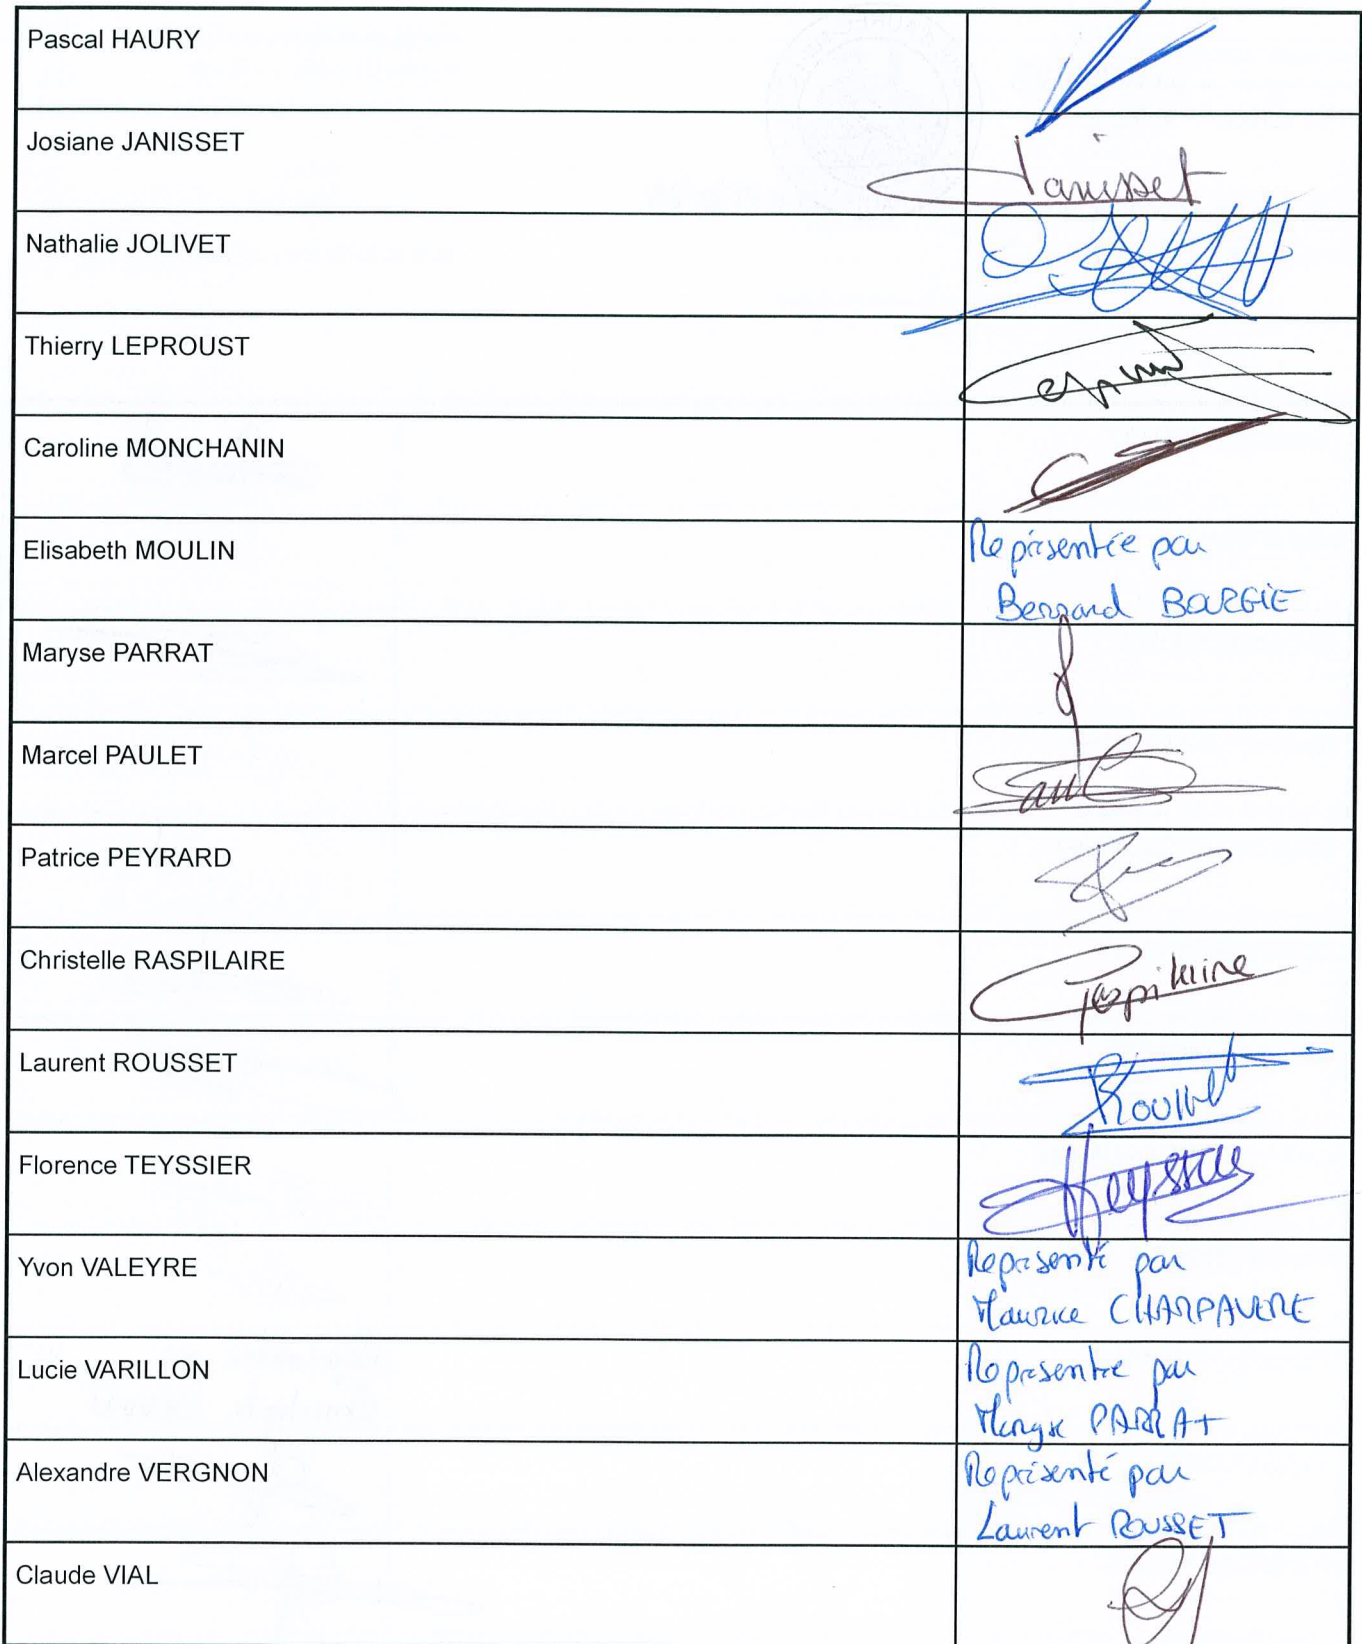 Pascal HAURY
Josiane JANISSET
Janisset
Nathalie JOLIVET
Thierry LEPROUST
Caroline MONCHANIN
Elisabeth MOULIN
Représentée par
Bernard BOURGIE
Maryse PARRAT
Marcel PAULET
Patrice PEYRARD
Christelle RASPILAIRE
Raspilaire
Laurent ROUSSET
Rousset
Florence TEYSSIER
Teyssier
Yvon VALEYRE
Représenté par
Maurice CHARPAVERE
Lucie VARILLON
Représentée par
Maryse PARRAT
Alexandre VERGNON
Représenté par
Laurent ROUSSET
Claude VIAL